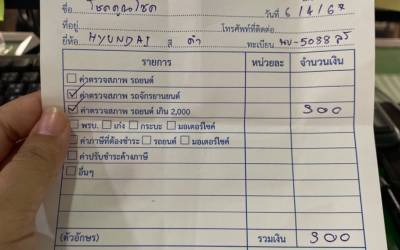 ชื่อ โชคคูณโชค วันที่ 6/4/67
ที่อยู่ โทรศัพท์ที่ติดต่อ
ยี่ห้อ HYUNDAI สี ดำ ทะเบียน -5038
รายการ หน่วยละ จำนวนเงิน
ค่าตรวจสภาพ รถยนต์
ค่าตรวจสภาพ รถจักรยานยนต์
ค่าตรวจสภาพ รถยนต์ เกิน 2,000 300
พรบ. เก๋ง กระบะ มอเตอร์ไซค์
ค่าภาษีที่ต้องชำระ รถยนต์ มอเตอร์ไซค์
ค่าปรับชำระล่าช้าภาษี
อื่นๆ
(ตัวอักษร) รวมเงิน 300